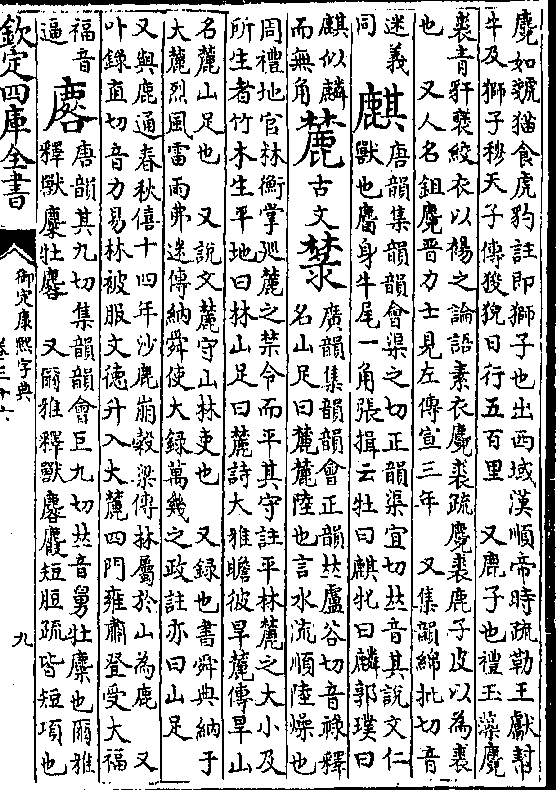 麑如虦猫食虎豹註即獅子也出西域漢順帝時疏勒王獻犎
牛及獅子穆天子傳狻猊日行五百里　又鹿子也禮玉藻麛
裘青豻褎絞衣以裼之論語素衣麑裘疏麑裘鹿子皮以為裘
也　又人名鉏麑晉力士見左傳宣三年　又集韻綿批切音
迷義
同
麒
唐韻集韻韻會渠之切正韻渠宜切𠀤音其說文仁
獸也麕身牛尾一角張揖云牡曰麒牝曰麟郭璞曰
麒似麟
而無角
麓
古文
䕾
廣韻集韻韻會正韻𠀤盧谷切音祿釋
名山足曰麓麓陸也言水流順陸燥也
周禮地官林衡掌廵麓之禁令而平其守註平林麓之大小及
所生者竹木生平地曰林山足曰麓詩大雅瞻彼旱麓傳旱山
名麓山足也　又說文麓守山林吏也　又錄也書舜典納于
大麓烈風雷雨弗迷傳納舜使大錄萬幾之政註亦曰山足
又與鹿通春秋僖十四年沙鹿崩穀梁傳林屬於山為鹿　又
叶錄直切音力易林被服文德升入大麓四門雍肅登受大福
福音
逼
麔
唐韻其九切集韻韻會巨九切𠀤音舅牡麋也爾雅
釋獸麋牡麔　又爾雅釋獸麔麚短脰疏皆短項也
欽定四庫全書
御定康熙字典
卷三十六
九